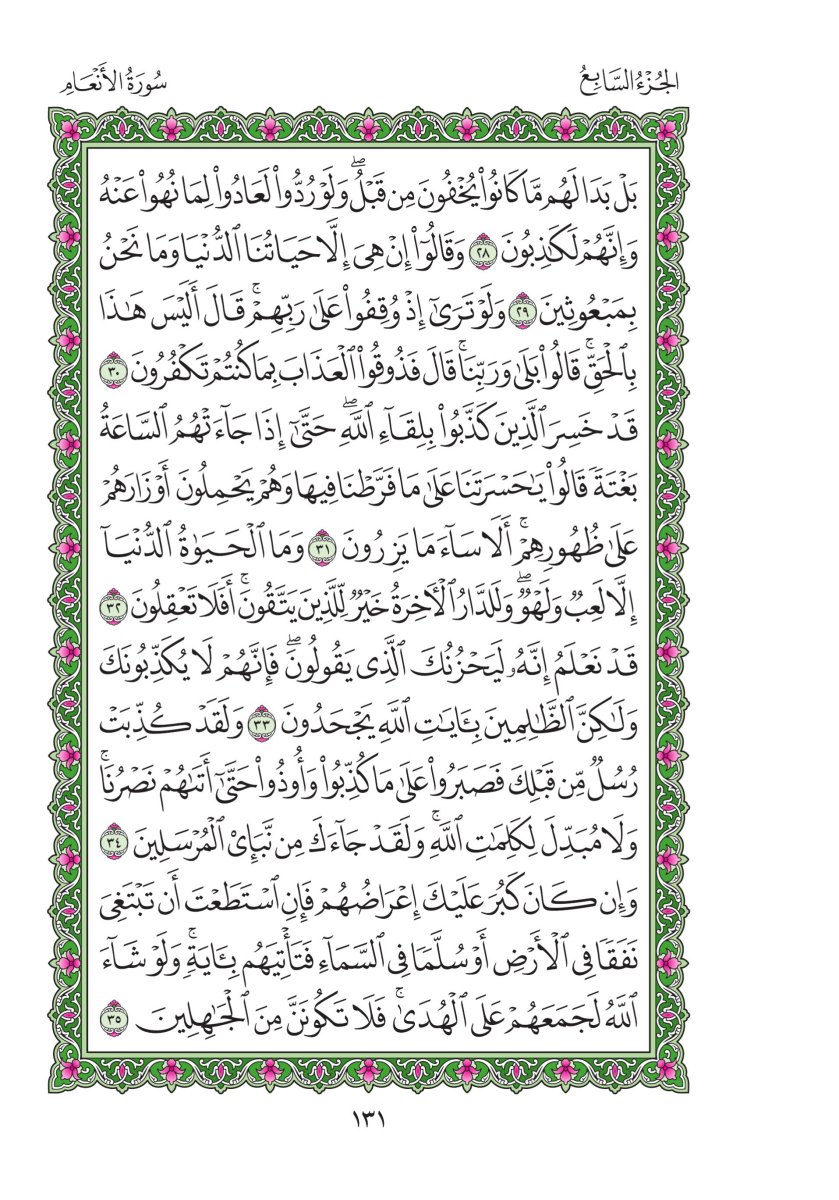 الجُزْءُ السَّابِعُ
سُورَةُ الأَنْعَامِ
بَلْ بَدَا لَهُم مَّا كَانُوا۟ يُخْفُونَ مِن قَبْلُ ۖ وَلَوْ رُدُّوا۟ لَعَادُوا۟ لِمَا نُهُوا۟ عَنْهُ
وَإِنَّهُمْ لَكَـٰذِبُونَ ٢٨ وَقَالُوٓا۟ إِنْ هِىَ إِلَّا حَيَاتُنَا ٱلدُّنْيَا وَمَا نَحْنُ
بِمَبْعُوثِينَ ٢٩ وَلَوْ تَرَىٰٓ إِذْ وُقِفُوا۟ عَلَىٰ رَبِّهِمْ ۚ قَالَ أَلَيْسَ هَـٰذَا
بِٱلْحَقِّ ۚ قَالُوا۟ بَلَىٰ وَرَبِّنَا ۚ قَالَ فَذُوقُوا۟ ٱلْعَذَابَ بِمَا كُنتُمْ تَكْفُرُونَ ٣٠
قَدْ خَسِرَ ٱلَّذِينَ كَذَّبُوا۟ بِلِقَآءِ ٱللَّهِ ۖ حَتَّىٰٓ إِذَا جَآءَتْهُمُ ٱلسَّاعَةُ
بَغْتَةً قَالُوا۟ يَـٰحَسْرَتَنَا عَلَىٰ مَا فَرَّطْنَا فِيهَا وَهُمْ يَحْمِلُونَ أَوْزَارَهُمْ
عَلَىٰ ظُهُورِهِمْ ۚ أَلَا سَآءَ مَا يَزِرُونَ ٣١ وَمَا ٱلْحَيَوٰةُ ٱلدُّنْيَآ
إِلَّا لَعِبٌ وَلَهْوٌ ۖ وَلَلدَّارُ ٱلْـَٔاخِرَةُ خَيْرٌ لِّلَّذِينَ يَتَّقُونَ ۚ أَفَلَا تَعْقِلُونَ ٣٢
قَدْ نَعْلَمُ إِنَّهُۥ لَيَحْزُنُكَ ٱلَّذِى يَقُولُونَ ۖ فَإِنَّهُمْ لَا يُكَذِّبُونَكَ
وَلَـٰكِنَّ ٱلظَّـٰلِمِينَ بِـَٔايَـٰتِ ٱللَّهِ يَجْحَدُونَ ٣٣ وَلَقَدْ كُذِّبَتْ
رُسُلٌ مِّن قَبْلِكَ فَصَبَرُوا۟ عَلَىٰ مَا كُذِّبُوا۟ وَأُوذُوا۟ حَتَّىٰٓ أَتَىٰهُمْ نَصْرُنَا ۚ
وَلَا مُبَدِّلَ لِكَلِمَـٰتِ ٱللَّهِ ۚ وَلَقَدْ جَآءَكَ مِن نَّبَإِى۟ ٱلْمُرْسَلِينَ ٣٤
وَإِن كَانَ كَبُرَ عَلَيْكَ إِعْرَاضُهُمْ فَإِنِ ٱسْتَطَعْتَ أَن تَبْتَغِىَ
نَفَقًا فِى ٱلْأَرْضِ أَوْ سُلَّمًا فِى ٱلسَّمَآءِ فَتَأْتِيَهُم بِـَٔايَةٍ ۚ وَلَوْ شَآءَ
ٱللَّهُ لَجَمَعَهُمْ عَلَى ٱلْهُدَىٰ ۚ فَلَا تَكُونَنَّ مِنَ ٱلْجَـٰهِلِينَ ٣٥
١٣١